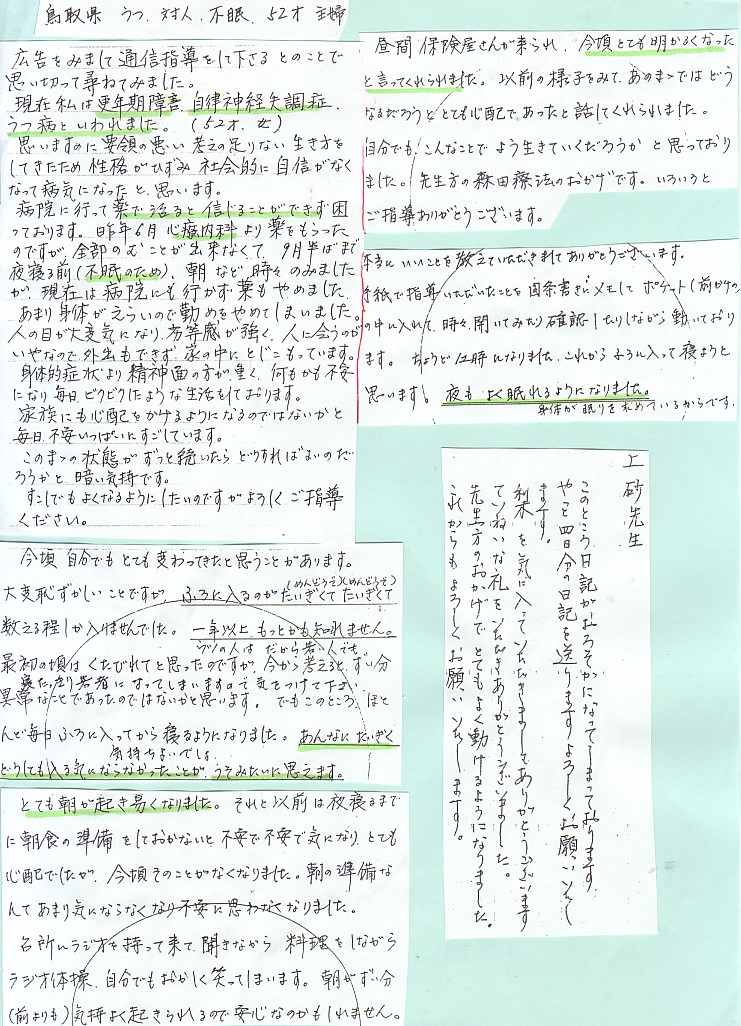 鳥取県 うつ、対人、不眠、52才 主婦
広告をみまして通信指導をして下さるとのことで
思い切って尋ねてみました。
現在私は更年期障害 自律神経失調症、
うつ病といわれました。(52才、女)
思いますのに要領の悪い考えの足りない生き方を
してきたため性格がひずみ社会的に自信がなく
なって病気になったと、思います。
病院に行って薬で治ると信じることができず困
っております。昨年6月心療内科より薬をもらった
のですが、全部のむことが出来なくて、9月半ばまで
夜寝る前(不眠のため)、朝など時々のみました
が、現在は病院にも行かず薬もやめました。
あまり身体がえらいので勤めをやめてしまいました。
人の目が大変気になり、劣等感が強く、人に会うのが
いやなので外出もできず家の中にとじこもっています。
身体的症状より精神面の方が重く、何もかも不安
になり毎日ビクビクしたような生活をしております。
家族にも心配をかけるようになるのではないかと
毎日不安いっぱいにすごしています。
このままの状態がずっと続いたらどうすればよいのだ
ろうかと、暗い気持です。
すこしでもよくなるようにしたいのですがよろしくご指導
ください。
今頃自分でもとても変わってきたと思うことがあります。
大変恥ずかしいことですが、ふろに入るのがたいぎくてたいぎくて
(めんどうで)(めんどうで)
数える程しか入れませんでした。一年以上もっとかも知れません。
ウツの人は だから若い人でも
最初の頃はくたびれてと思ったのですが、今から考えると、ずい分
寝たっ走り若者になってしまいますので気をつけて下さい
異常なことであったのではないかと思います。でもこのところ、ほと
んど毎日ふろに入ってから寝るようになりました。あんなにたいぎく
気持ちよいでしょ
どうしても入る気にならなかったことが、うそみたいに思えます。
とても朝が起き易くなりました。それと以前は夜寝るまで
に朝食の準備をしておかないと不安で不安で気になり、とても
心配でしたが、今頃そのことがなくなりました。朝の準備な
んてあまり気にならなくなり不安に思わなくなりました。
台所へラジオを持って来て、聞きながら料理をしながら
ラジオ体操、自分でもおかしく笑ってしまいます。朝がずい分
(前よりも)気持よく起きられるので安心なのかもしれません。
昼間保険屋さんが来られ、今頃とても明かるくなった
と言ってくれられました。以前の様子をみて、あのままではどう
なるだろうととても心配であったと話してくれられました。
自分でもこんなことでよう生きていくだろうかと思っており
ました。先生方の森田療法のおかげです。いろいろと
ご指導ありがとうございます。
本当にいいことを教えていただきましてありがとうございます。
手紙で指導いただいたことを箇条書きにメモしてポケット(前かけの)
の中に入れて、時々、開いてみたり確認したりしながら動いており
ます。ちょうど12時になりました、これからふろに入って寝ようと
思います。夜もよく眠れるようになりました。
身体が眠りを求めているからです。
上砂先生
このところ日記がおろそかになってしまっております
やっと四日分の日記を送りますよろしくお願いいたし
ます。
利木を気に入っていただきましてありがとうございます
ていねいな礼をいただきありがとうございました。
先生方のおかげでとてもよく動けるようになりました。
これからもよろしくお願いいたします。